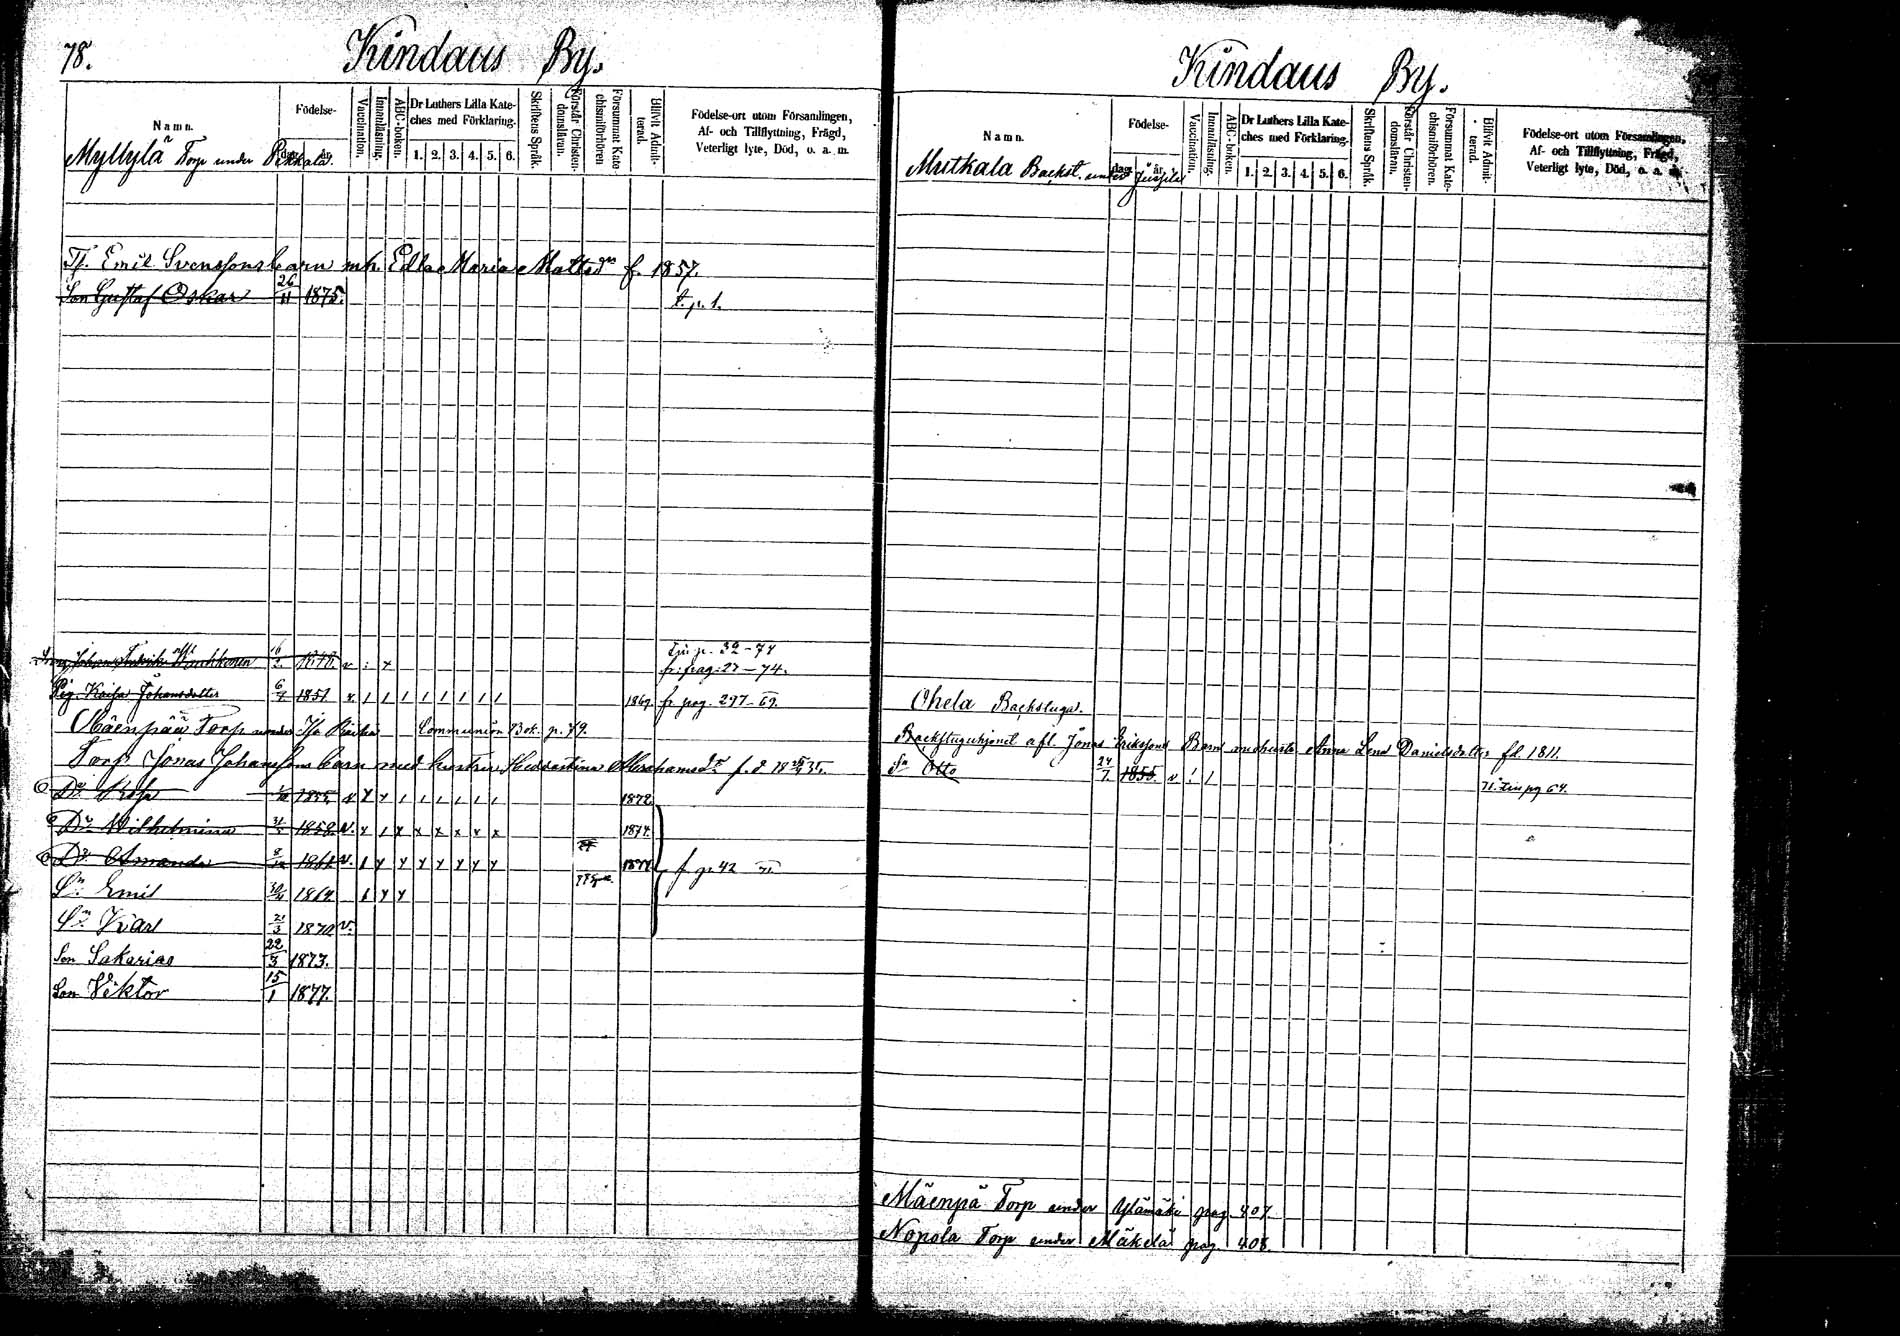 78.
Kindaus By.
Namn.
Födelse-
dag. år.
Vaccination.
Innanläsning.
ABC-boken.
Dr Luthers Lilla Kate-
ches med Förklaring.
1. 2. 3. 4. 5. 6.
Skriftens Språk.
Förstår Christen-
domsläran.
Försummat Kate-
chismiförhören
Blifvit Admit-
terad.
Födelse-ort utom Församlingen,
Af- och Tillflyttning, Frägd,
Veterligt lyte, Död, o. a. m.
Myllylä Torp under
Tf. Emil Svenssons barn mh. Edla Maria Mattsdr f. 1857.
Son Gustaf Oskar 26/11 1875. t. p. 1.
Johan Fredrik
fr: pag: 27-74.
Pig. Kaisa Johansdotter 6/7 1851 v. 1 1 1 1 1 1 1 1 1869. fr pag. 297-69.
Mäenpää Torp under Communion Bok. p. 79.
Torp Jonas Johanssons barn med hustru Abrahamsdr
Dr Rosa 1855. v 1872.
Dr Wilhelmina 1858. v. 1874.
Dr Amanda 1861 v. 1877 f p. 42
Sn Emil 30/4 1864
Sn Karl 21/3 1870 v.
Son Sakarias 22/3 1873.
Son Viktor 15/1 1877.
Kindaus By.
Namn.
Födelse-
dag. år.
Vaccination.
Innanläsning.
ABC-boken.
Dr Luthers Lilla Kate-
ches med Förklaring.
1. 2. 3. 4. 5. 6.
Skriftens Språk.
Förstår Christen-
domsläran.
Försummat Kate-
chismiförhören.
Blifvit Admit-
terad.
Födelse-ort utom Församlingen,
Af- och Tillflyttning, Frägd,
Veterligt lyte, Död, o. a. m.
Mutkala Backst. under Jussila
Ohela Backstuga.
Backstuguhjonet afl. Jonas Erikssons Barn m hustr Anna Lena Danielsdotter fd. 1811.
Sn Otto 24/7. 1855. v 1 1
Mäenpä Torp under Ylämäki pag. 407
Nopola Torp under Mäkelä pag. 408.